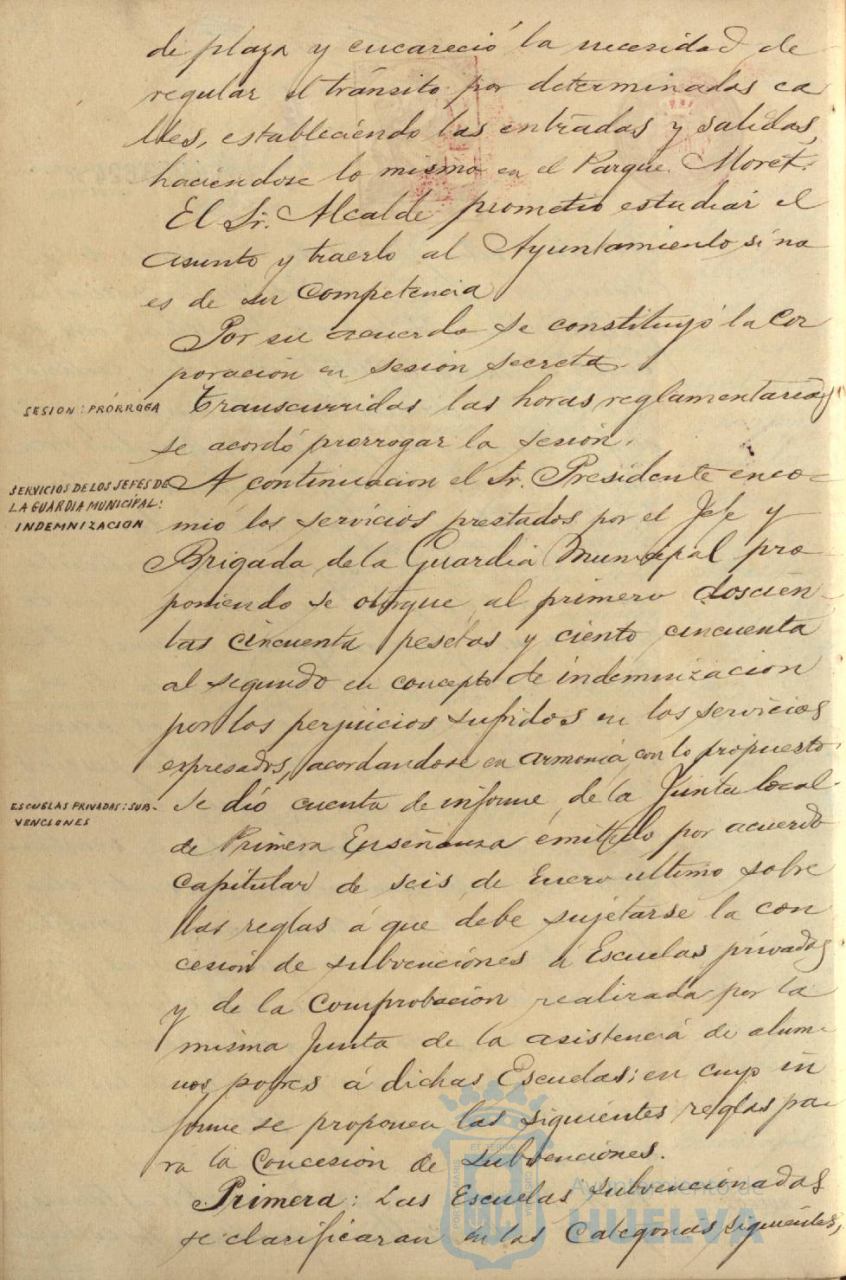 de plaza y encareció la necesidad de
regular el tránsito por determinadas ca
lles, estableciendo las entradas y salidas,
haciendose lo mismo en el Parque Moret.
El Sr. Alcalde prometio estudiar el
asunto y traerlo al Ayuntamiento si no
es de su competencia
Por su acuerdo se constituyó la Cor
poracion en sesión secreta.
SESION: PRÓRROGA
Transcurridas las horas reglamentarias
se acordó prorrogar la sesión.
SERVICIOS DE LOS JEFES DE
LA GUARDIA MUNICIPAL:
INDEMNIZACION
A continuacion el Sr. Presidente enco-
mió los servicios prestados por el Jefe y
Brigada de la Guardia Municipal pro-
poniendo se otorgue al primero doscien-
tas cincuenta pesetas y ciento cincuenta
al segundo en concepto de indemnizacion
por los perjuicios sufridos en los servicios
expresados, acordandose en armonía con lo propuesto.
ESCUELAS PRIVADAS: SUB-
VENCIONES
Se dió cuenta de informe de la Junta local
de Primera Enseñanza emitido por acuerdo
Capitular de seis de Enero último sobre
las reglas á que debe sujetarse la con
cesión de subvenciones á Escuelas privadas
y de la Comprobacion realizada por la
misma Junta de la asistencia de alum-
nos pobres á dichas Escuelas; en cuyo in
forme se proponen las siguientes reglas pa-
ra la Concesion de subvenciones.
Primera: Las Escuelas subvencionadas
se clarificaran en las Categorias siguientes,
Ayuntamiento de
HUELVA